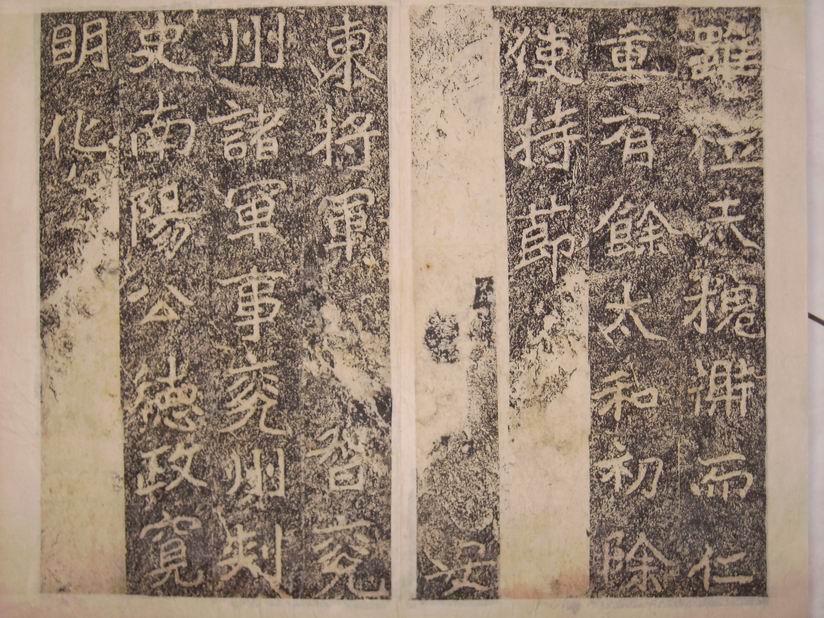 雖位未槐鼎而仁
重有餘太和初除
使持節
安
東將軍督兗
州諸軍事兗州刾
史南陽公德政寬
明化